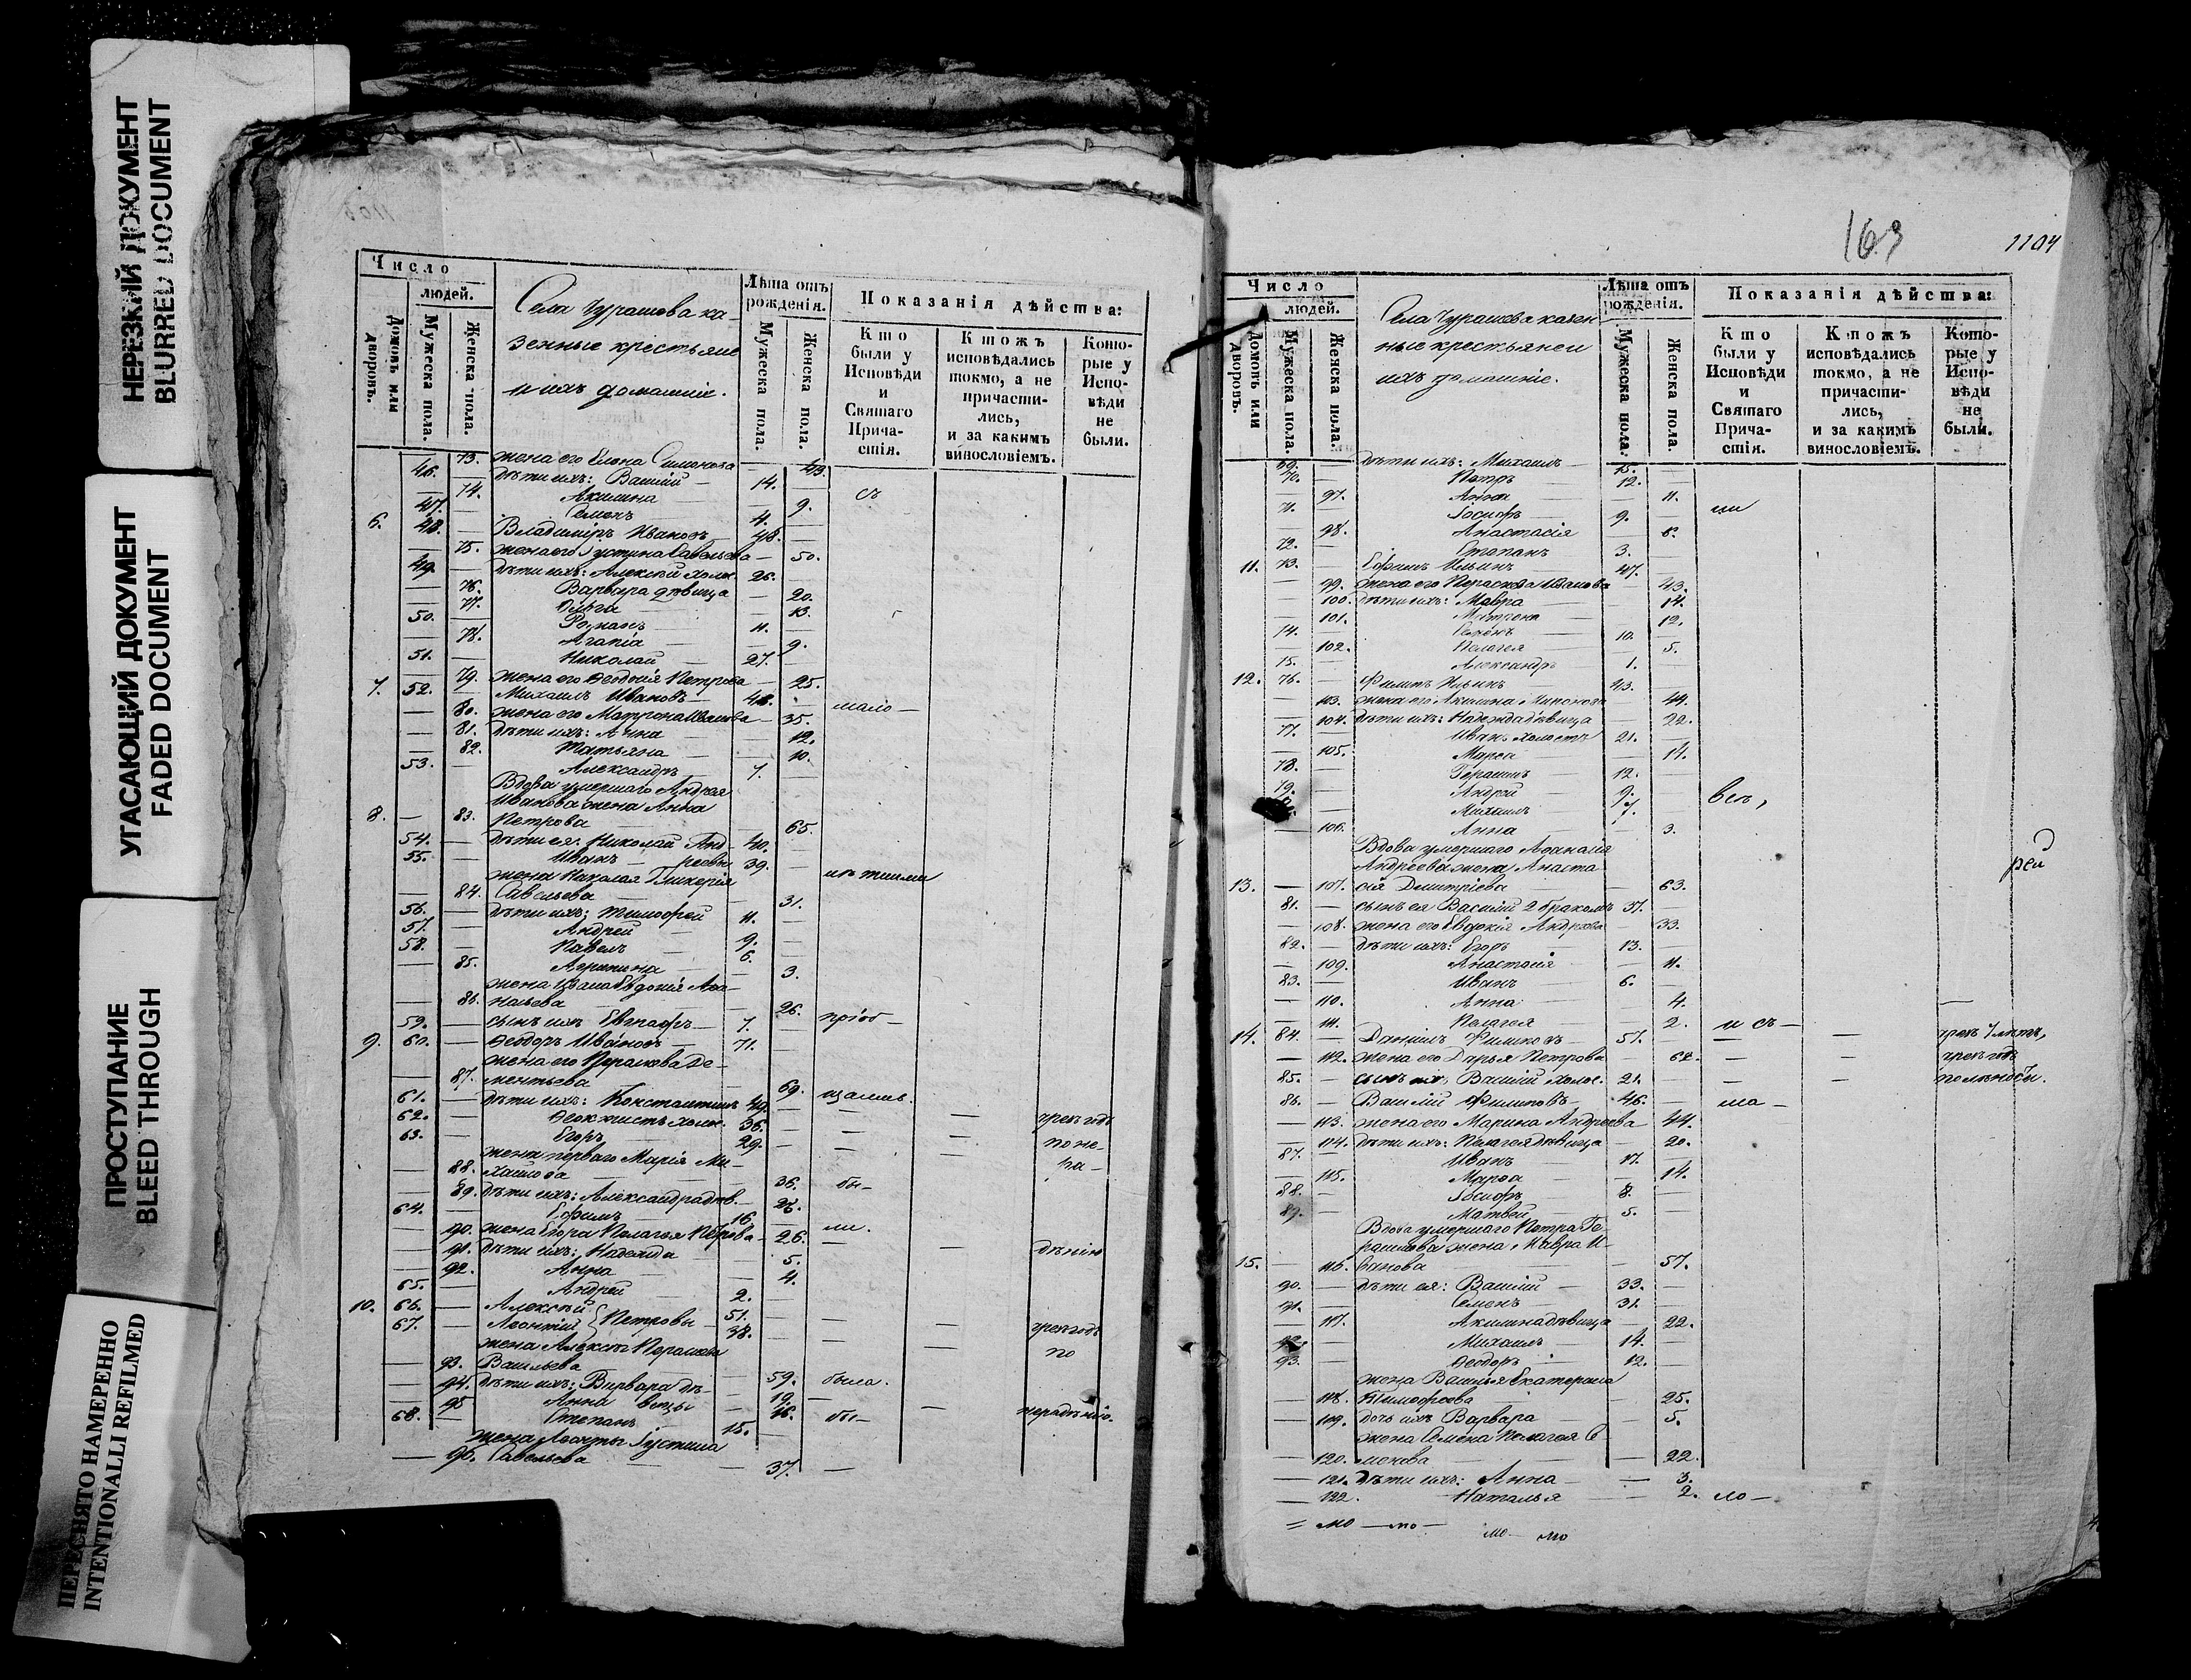 НЕРЕЗКИЙ ДОКУМЕНТ
BLURRED DOCUMENT
УГАСАЮЩИЙ ДОКУМЕНТ
FADED DOCUMENT
ПРОСТУПАНИЕ
BLEED THROUGH
ПЕРЕСНЯТО НАМЕРЕННО
INTENTIONALLI REFILMED
Число
людей.
Домовъ или дворовъ.
Мужеска пола.
Женска пола.
Села Чурашова ка-
зенные крестьяне
и ихъ домашніе.
Лѣта отъ рожденія.
Мужеска пола.
Женска пола.
Показанія дѣйства:
Кто были у Исповѣди и Святаго Причастія.
Ктожъ исповѣдались токмо, а не причастились, и за какимъ винословіемъ.
Которые у Исповѣди не были.
73. жена его Елена Симонова — 43.
46. — дѣти ихъ: Василій — 14. —
— 74. Акилина — 9. съ
47. — Семенъ — 4. —
6. 48. — Владиміръ Ивановъ 48. —
— 75. жена его Іустина Савельева — 50.
49. — дѣти ихъ: Алексѣй холос. 26. —
— 76. Варвара дѣвица — 20.
— 77. Ольга — 13.
50. — Романъ — 11. —
— 78. Агапія — 9.
51. — Николай — 27. —
— 79. жена его Ѳеодосія Петрова — 25.
7. 52. — Михаилъ Ивановъ — 48. —
— 80. жена его Матрона Иванова — 35. мало —
— 81. дѣти ихъ: Анна — 12.
— 82. Татьяна — 10.
53. — Александръ — 7. —
Вдова умершаго Андрея
Иванова жена Анна
8. — 83. Петрова — 65.
54. — дѣти ея: Николай Анд- 40. —
55. — Иванъ — реевы 39. —
жена Николая Гликерія
— 84. Савельева — 31.
56. — дѣти ихъ: Тимофей 11. —
57. — Андрей — 9. —
58. — Павелъ — 6. —
— 85. Агрипина — 3.
жена Ивана Евдокія Ана-
— 86. ньева — 26. пріоб —
59. — сынъ ихъ Евграфъ — 7. —
9. 60. — Ѳеодоръ Ивановъ — 71. —
жена его Пераскова Де-
— 87. ментьева — 69.
61. — дѣти ихъ: Константинъ 49. —
62. — Ѳеоктистъ холос. 36. — — чрезъ годъ
63. — Егоръ — 29. — — по не-
жена перваго Марія Ми-
— 88. хайлова — 36. бы —
— 89. дѣти ихъ: Александра дѣв. — 26.
64. — Ефимъ — 16 —
— 90. жена Егора Пелагея Петрова — 26. ли.
— 91. дѣти ихъ: Надежда — 5. —
— 92. Анна — 4.
65. — Андрей — 2. —
10. 66. — Алексѣй Петровы — 51. — — —
67. — Леонтій 38. — — чрезъ годъ
жена Алексѣя Пераскова — по
— 93. Васильева — 59. была.
— 94. дѣти ихъ: Варвара дѣ- — 19. —
— 95 Анна вицы — 16.
68. — Степанъ 15. — бы — — нерадѣнію.
жена Леонтья Іустина
— 96. Савельева — 37. —
163
1104
Число
людей.
Домовъ или дворовъ.
Мужеска пола.
Женска пола.
Села Чурашова казен
ные крестьяне и
ихъ домашніе.
Лѣта отъ рожденія.
Мужеска пола.
Женска пола
Показанія дѣйства:
Кто были у Исповѣди и Святаго Причастія.
Ктожъ исповѣдались токмо, а не причастились, и за какимъ винословіемъ.
Которые у Исповѣди не были.
69. — дѣти ихъ: Михаилъ — 15. —
70. — Петръ — 12. —
— 97. Анна — 11.
71. — Іосифъ — 9. —
— 98. Анастасія — 6.
72. — Степанъ — 3. —
11. 73. — Ефимъ Ильинъ 47. —
— 99. жена его Пераскова Иванова — 43.
— 100. дѣти ихъ: Мавра — 14.
— 101. Матрона — 12.
74. — Семенъ — 10. —
— 102. Пелагея — 5.
75. — Александръ — 1. —
12. 76. — Филипъ Ильинъ — 43. —
— 103. жена его Акилина — 44.
— 104. дѣти ихъ: Надежда дѣвица — 22.
77. — Иванъ холостъ 21. —
— 105. Марѳа — 14.
78. — Герасимъ 12. —
79. — Андрей — 9. — вел,
— Михаилъ — 7. —
— 106. Анна — 3.
Вдова умершаго Аѳанасія
Андреева жена Анаста
13. — 107. сія Дмитріева — 63.
81. — сынъ ея Василій 2 бракомъ 37. —
— 108. жена его Евдокія Андреева — 33.
82. — дѣти ихъ: Егоръ 13. —
— 109. Анастасія — 11.
83. — Иванъ — 6. —
— 110. Анна — 4.
— 111. Пелагея — 2. и съ —
14. 84. — Даніилъ Филиповъ — 57. — —
— 112. жена его Дарья Петрова — 62. — — чрезъ годъ
85. — сынъ ихъ Василій холос. 21. — — —
86. — Василій Филиповъ — 46. — ша —
— 113. жена его Марина Андреева 44.
— 114. дѣти ихъ: Пелагея дѣвица — 20.
87. — Иванъ — 17. —
— 115. Марѳа — 14.
88. — Іосифъ 8. —
89. — Матвей 5. —
Вдова умершаго Петра Ге-
расимова жена Мавра И-
15. — 116. ванова — 57.
90. — дѣти ея: Василій — 33. —
91. — Семенъ — 31. —
— 117. Акилина дѣвица — 22.
92. — Михаилъ — 14. —
93. — Ѳеодоръ — 12. —
жена Василья Екатерина
— 118. Тимофеева — 25.
— 119. дочь ихъ Варвара — 5.
жена Семена Пелагея Се
— 120. менова — 22.
— 121. дѣти ихъ: Анна — 3.
— 122. Наталья — 2. ло —